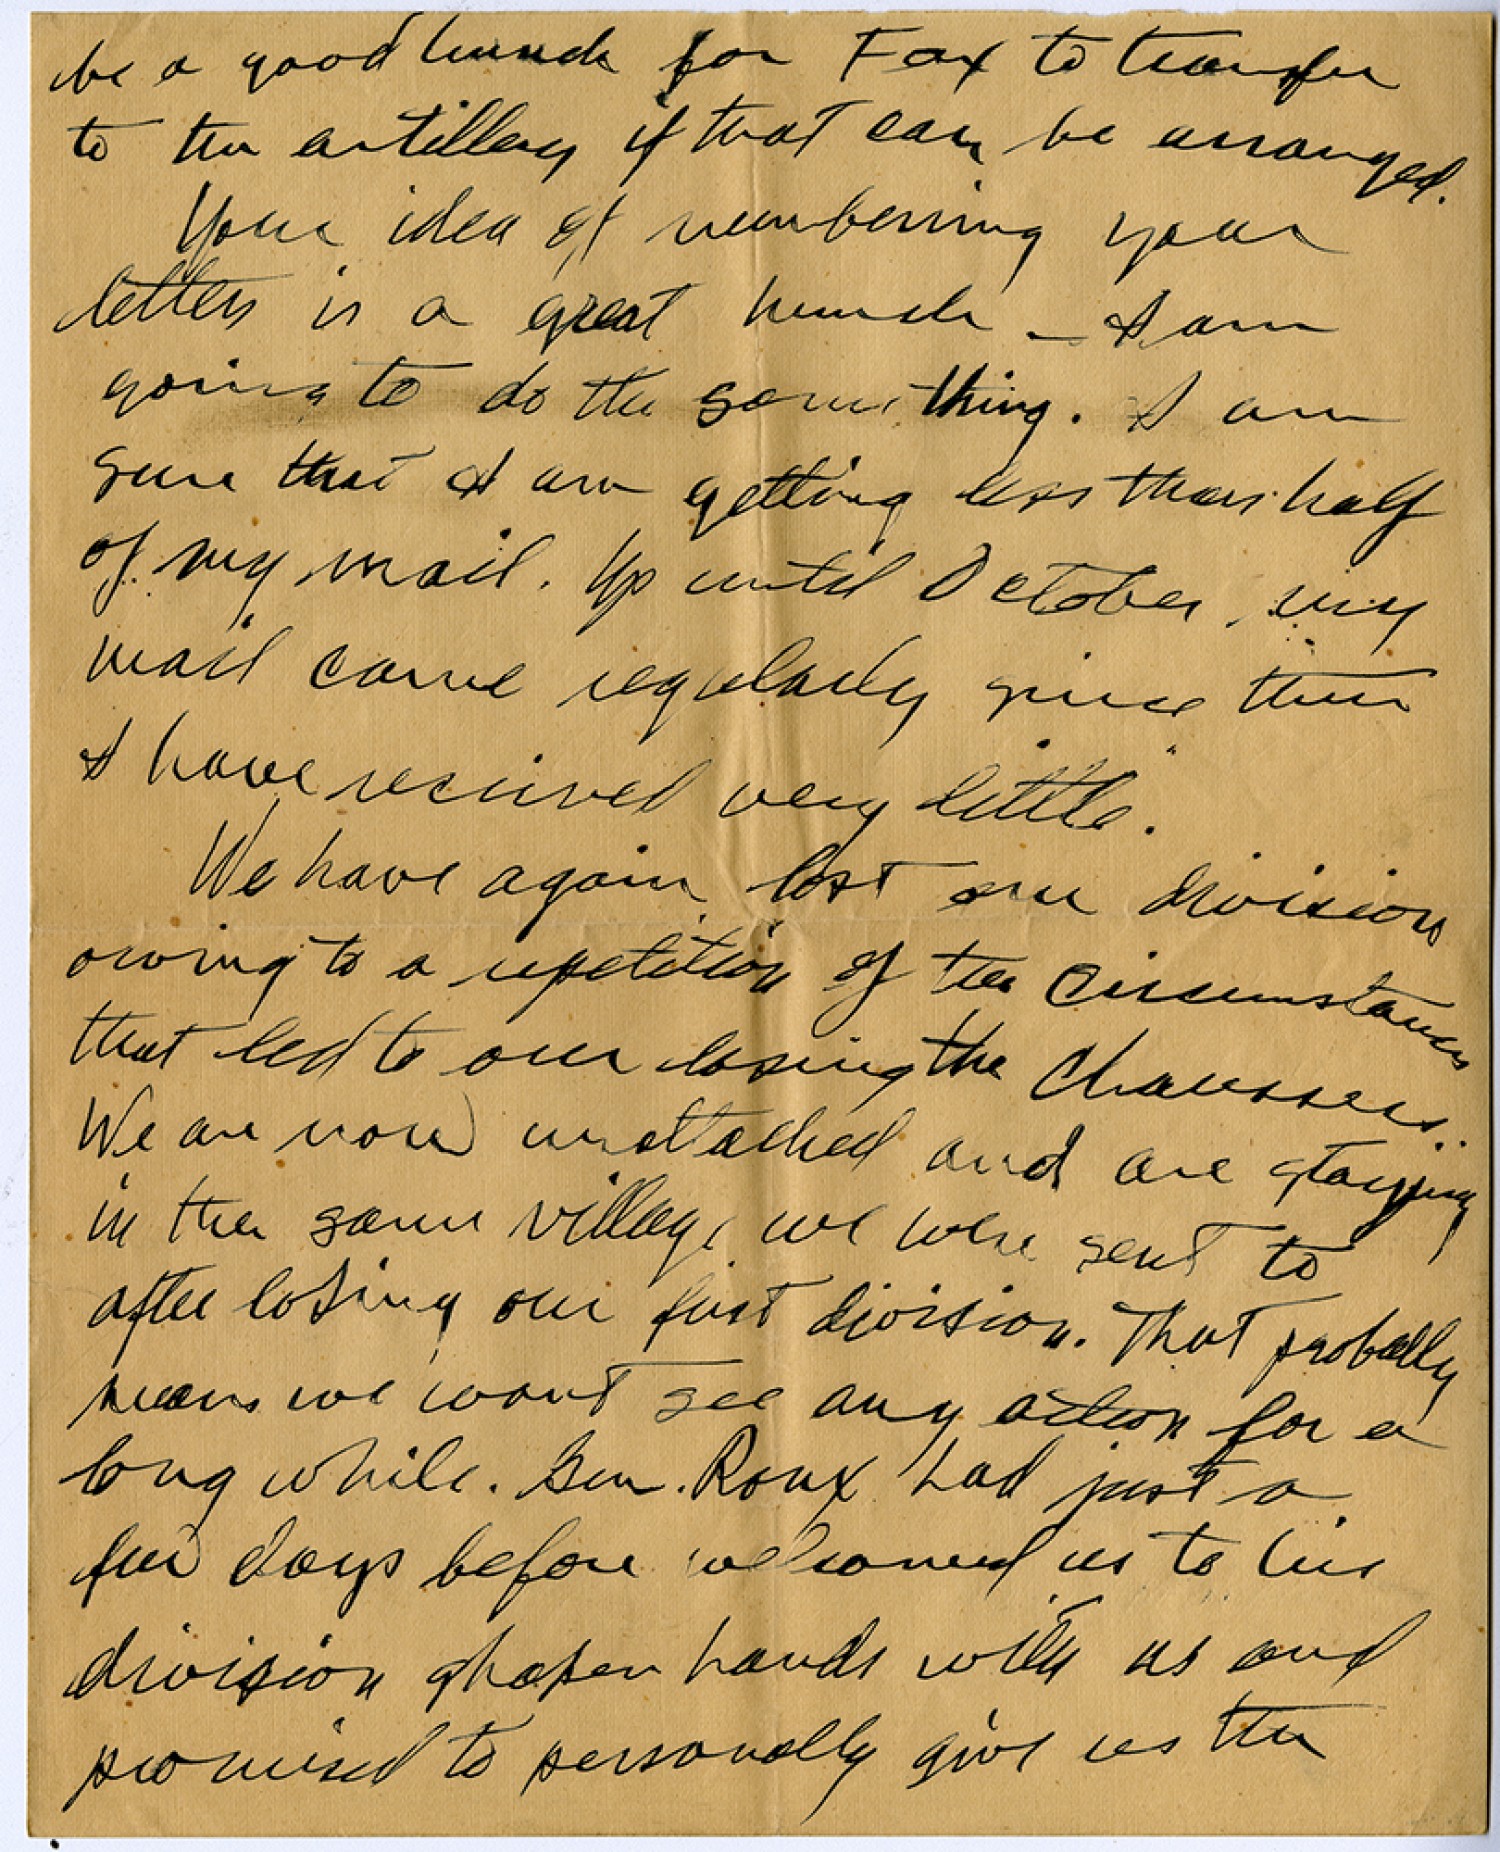 be a good hunch for Fax to transfer
to the artillery if that can be arranged.
Your idea of numbering your
letters is a great hunch - I am
going to do the same thing. I am
sure that I am getting less than half
of my mail. Up until October my
mail came regularly since then
I have received very little.
We have again lost our division
owing to a repetition of the circumstances
that led to our losing the Chaussers.
We are now unattached and are staying
in the same village we were sent to
after losing our first division. That probally
means we wont see any action for a
long while. Gen. Roux had just a
few days before welcomed us to his
division shaken hands with us and
promised to personally give us the